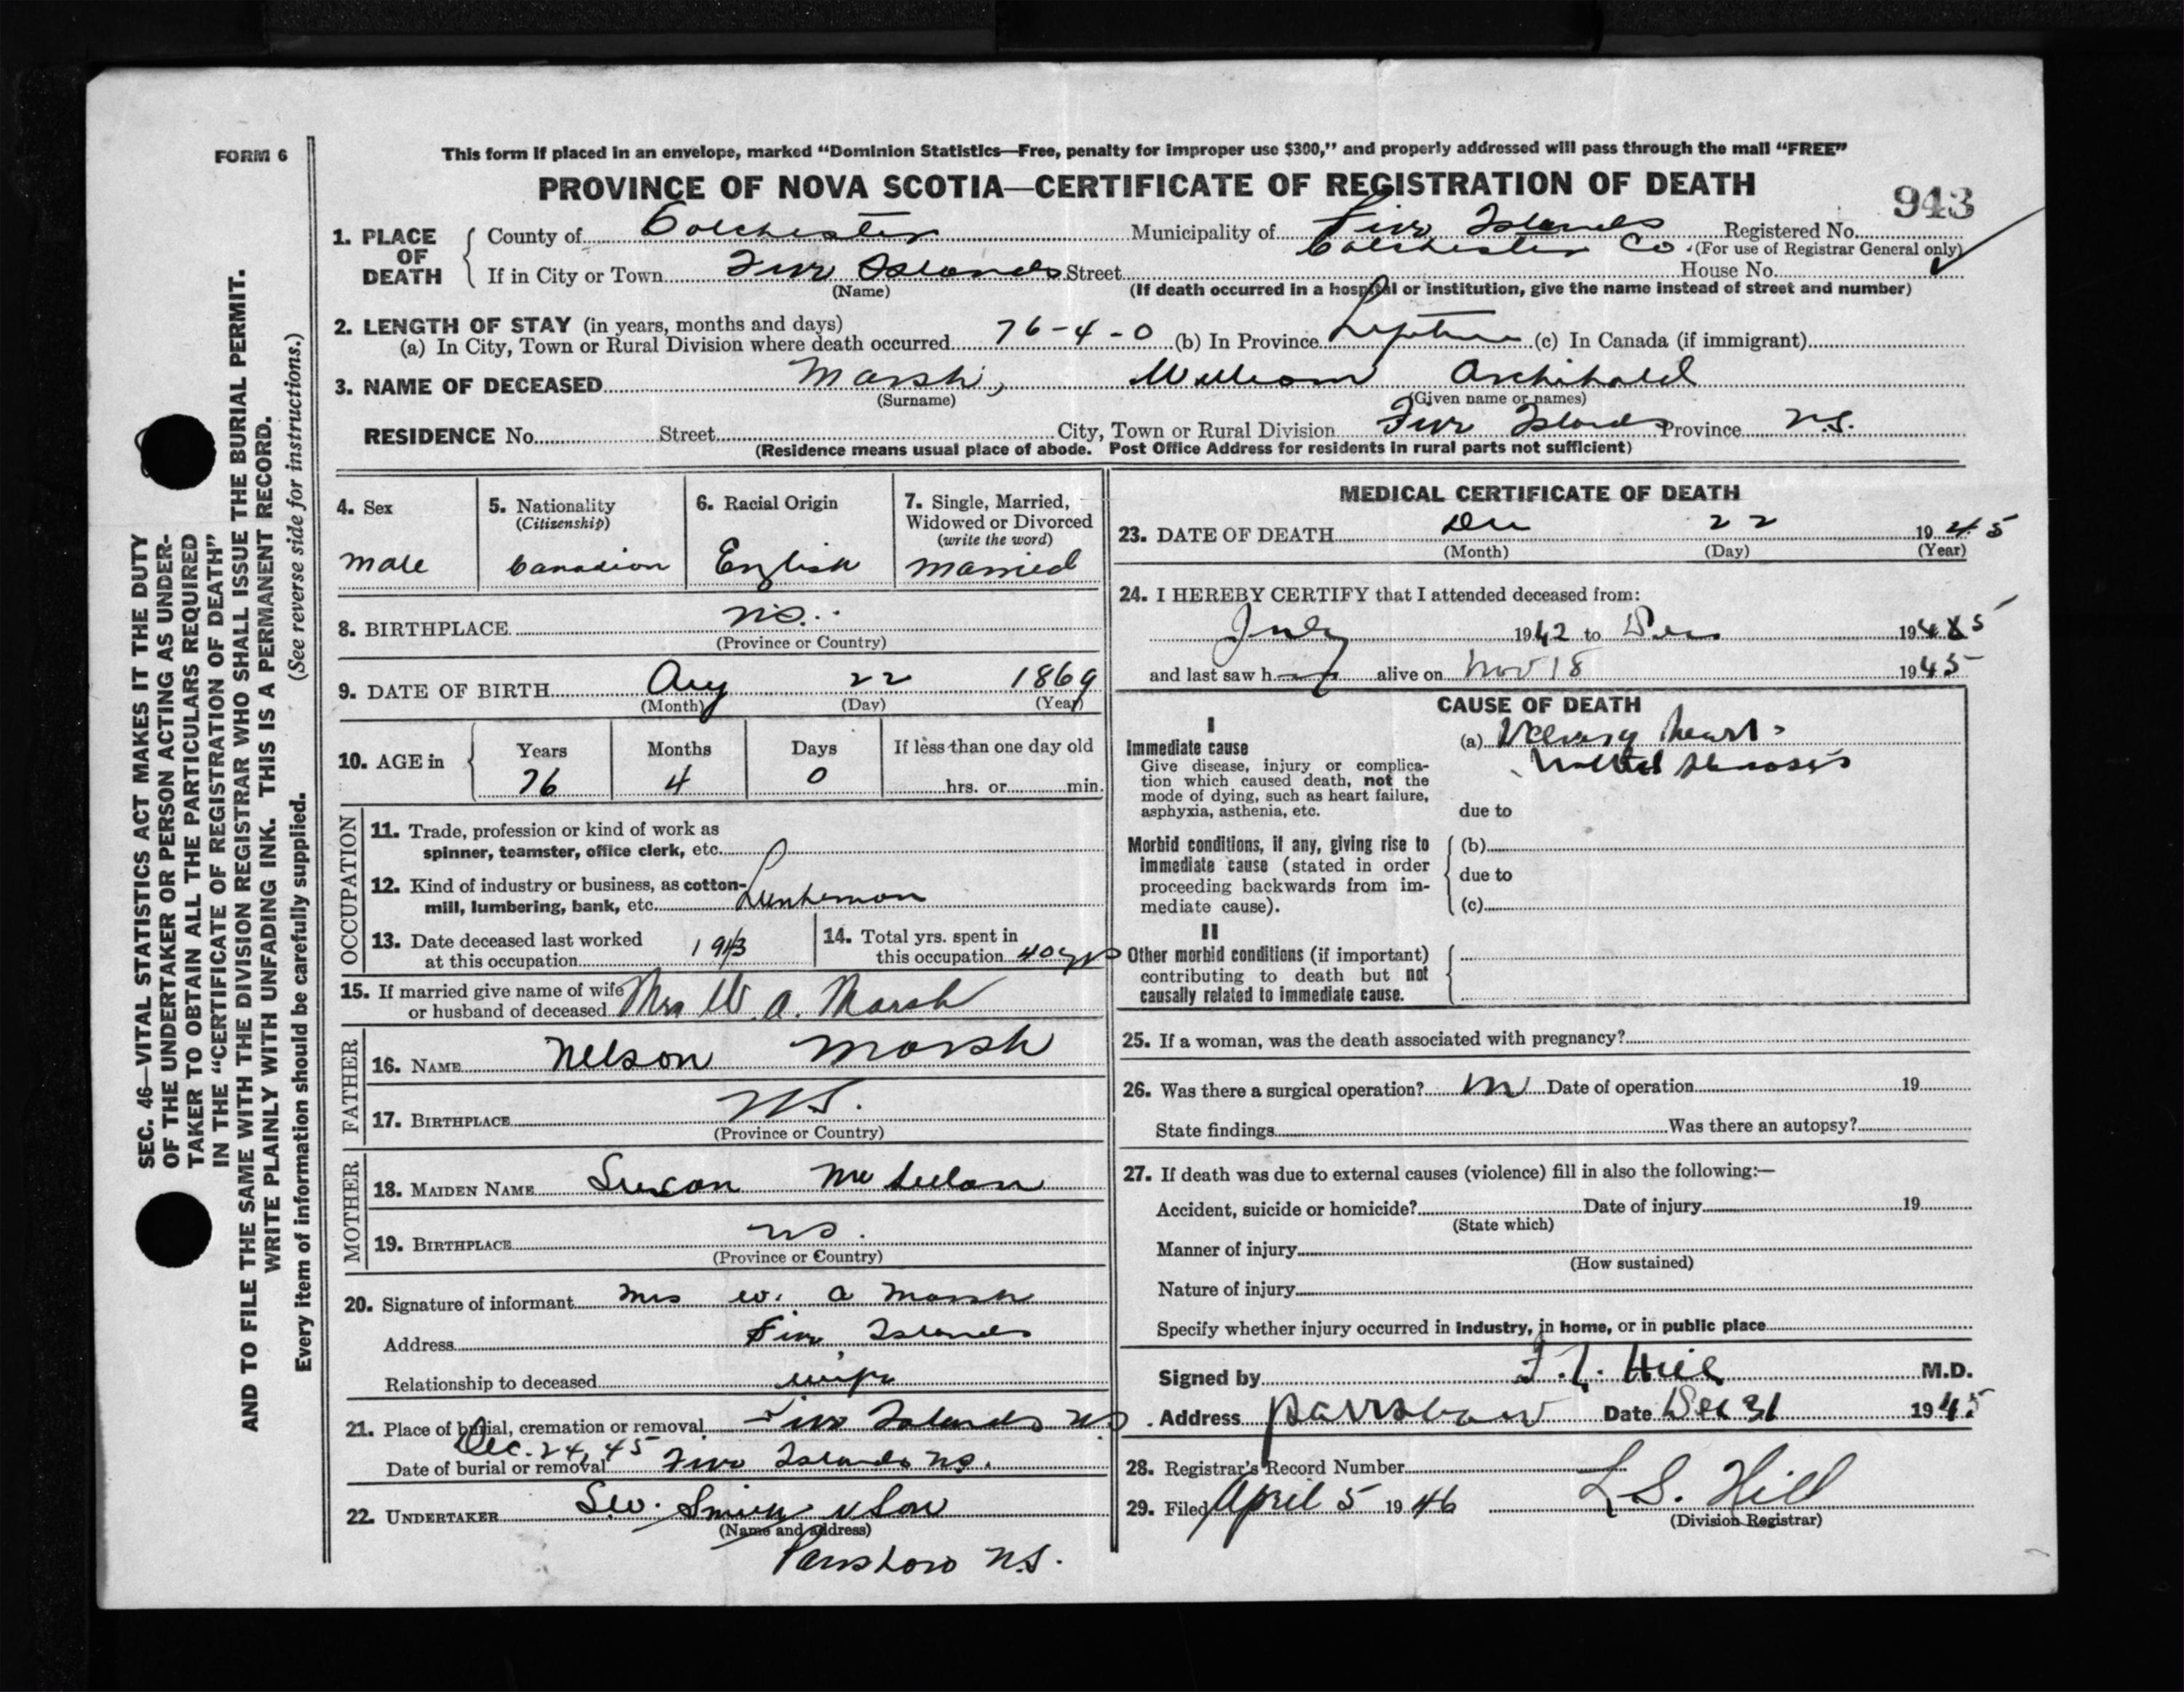 FORM 6
This form if placed in an envelope, marked “Dominion Statistics—Free, penalty for improper use $300,” and properly addressed will pass through the mail “FREE”
PROVINCE OF NOVA SCOTIA—CERTIFICATE OF REGISTRATION OF DEATH
943
1. PLACE OF DEATH { County of Colchester Municipality of Five Islands Registered No.
Colchester Co (For use of Registrar General only)
If in City or Town Five Islands Street House No.
(Name) (If death occurred in a hospital or institution, give the name instead of street and number)
2. LENGTH OF STAY (in years, months and days)
(a) In City, Town or Rural Division where death occurred 76-4-0 (b) In Province Lifetime (c) In Canada (if immigrant)
3. NAME OF DECEASED Marsh, William Archibald
(Surname) (Given name or names)
RESIDENCE No. Street City, Town or Rural Division Five Islands Province N.S.
(Residence means usual place of abode. Post Office Address for residents in rural parts not sufficient)
4. Sex
male
5. Nationality
(Citizenship)
Canadian
6. Racial Origin
English
7. Single, Married,
Widowed or Divorced
(write the word)
married
8. BIRTHPLACE N.S.
(Province or Country)
9. DATE OF BIRTH Aug 22 1869
(Month) (Day) (Year)
10. AGE in { Years Months Days If less than one day old
76 4 0 hrs. or min.
OCCUPATION
11. Trade, profession or kind of work as
spinner, teamster, office clerk, etc.
12. Kind of industry or business, as cotton-
mill, lumbering, bank, etc. Lumberman
13. Date deceased last worked
at this occupation 1943
14. Total yrs. spent in
this occupation 40 yrs
15. If married give name of wife
or husband of deceased Mrs W. A. Marsh
FATHER
16. NAME Nelson Marsh
17. BIRTHPLACE N.S.
(Province or Country)
MOTHER
18. MAIDEN NAME Susan
19. BIRTHPLACE N.S.
(Province or Country)
20. Signature of informant Mrs W. A Marsh
Address Five Islands
Relationship to deceased wife
21. Place of burial, cremation or removal Five Islands N.S.
Dec. 24, 45
Date of burial or removal Five Islands N.S.
22. UNDERTAKER Smith & Son
(Name and address)
Parrsboro N.S.
MEDICAL CERTIFICATE OF DEATH
23. DATE OF DEATH Dec 22 1945
(Month) (Day) (Year)
24. I HEREBY CERTIFY that I attended deceased from:
July 1942 to Dec 1945
and last saw h alive on Nov 18 1945
CAUSE OF DEATH
I
Immediate cause
Give disease, injury or complica-
tion which caused death, not the
mode of dying, such as heart failure,
asphyxia, asthenia, etc.
(a) heart
stenosis
due to
Morbid conditions, if any, giving rise to
immediate cause (stated in order
proceeding backwards from im-
mediate cause).
(b)
due to
(c)
II
Other morbid conditions (if important)
contributing to death but not
causally related to immediate cause.
25. If a woman, was the death associated with pregnancy?
26. Was there a surgical operation? no Date of operation 19
State findings Was there an autopsy?
27. If death was due to external causes (violence) fill in also the following:—
Accident, suicide or homicide? Date of injury 19
(State which)
Manner of injury
(How sustained)
Nature of injury
Specify whether injury occurred in industry, in home, or in public place
Signed by Hill M.D.
Address Parrsboro Date Dec 31 1945
28. Registrar's Record Number
29. Filed April 5 1946 L S. Hill
(Division Registrar)
SEC. 46—VITAL STATISTICS ACT MAKES IT THE DUTY
OF THE UNDERTAKER OR PERSON ACTING AS UNDER-
TAKER TO OBTAIN ALL THE PARTICULARS REQUIRED
IN THE “CERTIFICATE OF REGISTRATION OF DEATH”
AND TO FILE THE SAME WITH THE DIVISION REGISTRAR WHO SHALL ISSUE THE BURIAL PERMIT.
WRITE PLAINLY WITH UNFADING INK. THIS IS A PERMANENT RECORD.
Every item of information should be carefully supplied. (See reverse side for instructions.)